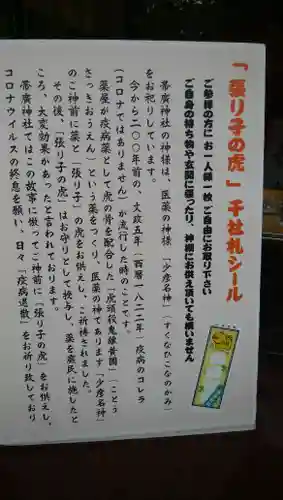 「張り子の虎」千社札シール
ご参拝の方に お一人様一枚 ご自由にお取り下さい
ご自身の持ち物や玄関に張ったり、神棚にお供え頂いても構いません
帯廣神社の神様は、医薬の神様「少彦名神」(すくなひこなのかみ)
をお祀りしています。
今から二〇〇年前の、文政五年(西暦一八二二年)疫病のコレラ
(コロナではありません)が流行した時のことです。
薬屋が疫病薬として虎の骨を配合した「虎頭殺鬼雄黄圓」(ことう
さっきおうえん)という薬をつくり、医薬の神であります「少彦名神」
のご神前に薬と「張り子」の虎をお供えし、ご祈祷されました。
その後、「張り子の虎」はお守りとして授与し、薬を庶民に施したと
ころ、大変効果があったと言われております。
帯廣神社ではこの故事に倣ってご神前に「張り子の虎」をお供えし、
コロナウイルスの終息を願い、日々「疫病退散」をお祈り致しており